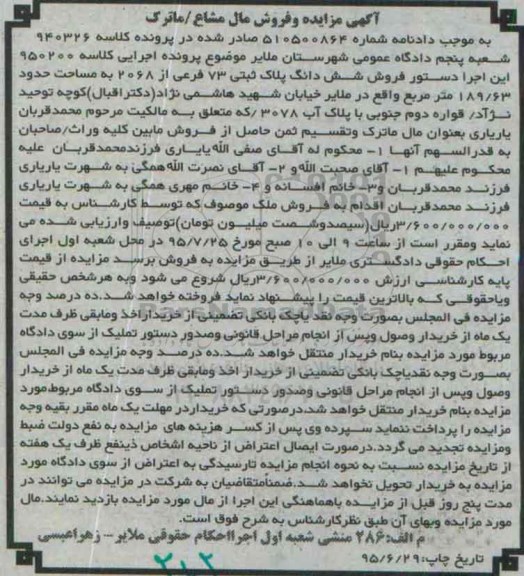 آگهی مزایده وفروش مال مشاع/ماترک
به موجب دادنامه شماره ۵۱۰۵۰۰۸۶۴ صادر شده در پرونده کلاسه ۹۴۰۳۲۶
شعبه پنجم دادگاه عمومی شهرستان ملایر موضوع پرونده اجرایی کلاسه ۹۵۰۲۰۰
این اجرا دستور فروش شش دانگ پلاک ثبتی ۷۳ فرعی از ۲۰۶۸ به مساحت حدود
۱۸۹/۶۳ متر مربع واقع در ملایر خیابان شهید هاشمی نژاد(دکتراقبال)کوچه توحید
نژآد/ قواره دوم جنوبی با پلاک آب ۳۰۷۸ /که متعلق به مالکیت مرحوم محمدقربان
یاریاری بعنوان مال ماترک وتقسیم ثمن حاصل از فروش مابین کلیه وراث/صاحبان
به قدرالسهم آنها ۱- محکوم له آقای صفی الله یاریاری فرزندمحمدقربان علیه
محکوم علیهم ۱- آقای صحبت الله و ۲- آقای نصرت الله همگی به شهرت یاریاری
فرزند محمدقربان و۳-خانم افسانه و ۴- خانم مهری همگی به شهرت یاریاری
فرزند محمدقربان اقدام به فروش ملک موصوف که توسط کارشناس به قیمت
۳/۶۰۰/۰۰۰/۰۰۰ریال(سیصدوشصت میلیون تومان)توصیف وارزیابی شده می
نماید ومقرر است از ساعت ۹ الی ۱۰ صبح مورخ ۹۵/۷/۲۵ در محل شعبه اول اجرای
احکام حقوقی دادگستری ملایر از طریق مزایده به فروش برسد مزایده از قیمت
پایه کارشناسی ارزش ۳/۶۰۰/۰۰۰/۰۰۰ریال شروع می شود وبه هرشخص حقیقی
ویاحقوقی که بالاترین قیمت را پیشنهاد نماید فروخته خواهد شد.ده درصد وجه
مزایده فی المجلس بصورت وجه نقد یاچک بانکی تضمینی از خریداراخذ ومابقی ظرف مدت
یک ماه از خریدار وصول وپس از انجام مراحل قانونی وصدور دستور تملیک از سوی دادگاه
مربوط مورد مزایده بنام خریدار منتقل خواهد شد.ده درصد وجه مزایده فی المجلس
بصورت وجه نقدیاچک بانکی تضمینی از خریدار اخذ ومابقی ظرف مدت یک ماه از خریدار
وصول وپس از انجام مراحل قانونی وصدور دستور تملیک از سوی دادگاه مربوط،مورد
مزایده بنام خریدار منتقل خواهد شد.درصورتی که خریداردر مهلت یک ماه مقرر بقیه وجه
مزایده را پرداخت ننماید سپرده وی پس از کسر هزینه های مزایده به نفع دولت ضبط
ومزایده تجدید می گردد.درصورت ایصال اعتراض از ناحیه اشخاص ذینفع ظرف یک هفته
از تاریخ مزایده نسبت به نحوه انجام مزایده تارسیدگی به اعتراض از سوی دادگاه مورد
مزایده به خریدار تحویل نخواهد شد.ضمنامتقاضیان به شرکت در مزایده می توانند در
مدت پنج روز قبل از مزایده باهماهنگی این اجرا از مال مورد مزایده بازدید نمایند.مال
مورد مزایده وبهای آن طبق نظرکارشناس به شرح فوق است.
م الف:۲۸۶ منشی شعبه اول اجرااحکام حقوقی ملایر-- زهراعبسی
تاریخ چاپ:۹۵/۶/۲۹
۲۰۲